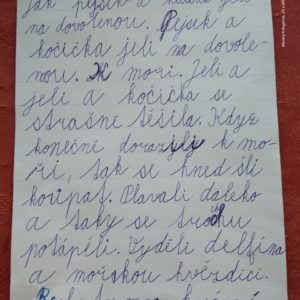 Jak pejsek a kočička jeli
na dovolenou. Pejsek a
kočička jeli na dovole-
nou. K moři. Jeli a
jeli a kočička se
strašně těšila. Když
konečně dorazili k mo-
ři, tak se hned šli
koupat. Plavali daleko
a taky se trochu
potápěli. Vyděli delfína
a mořskou hvězdici.